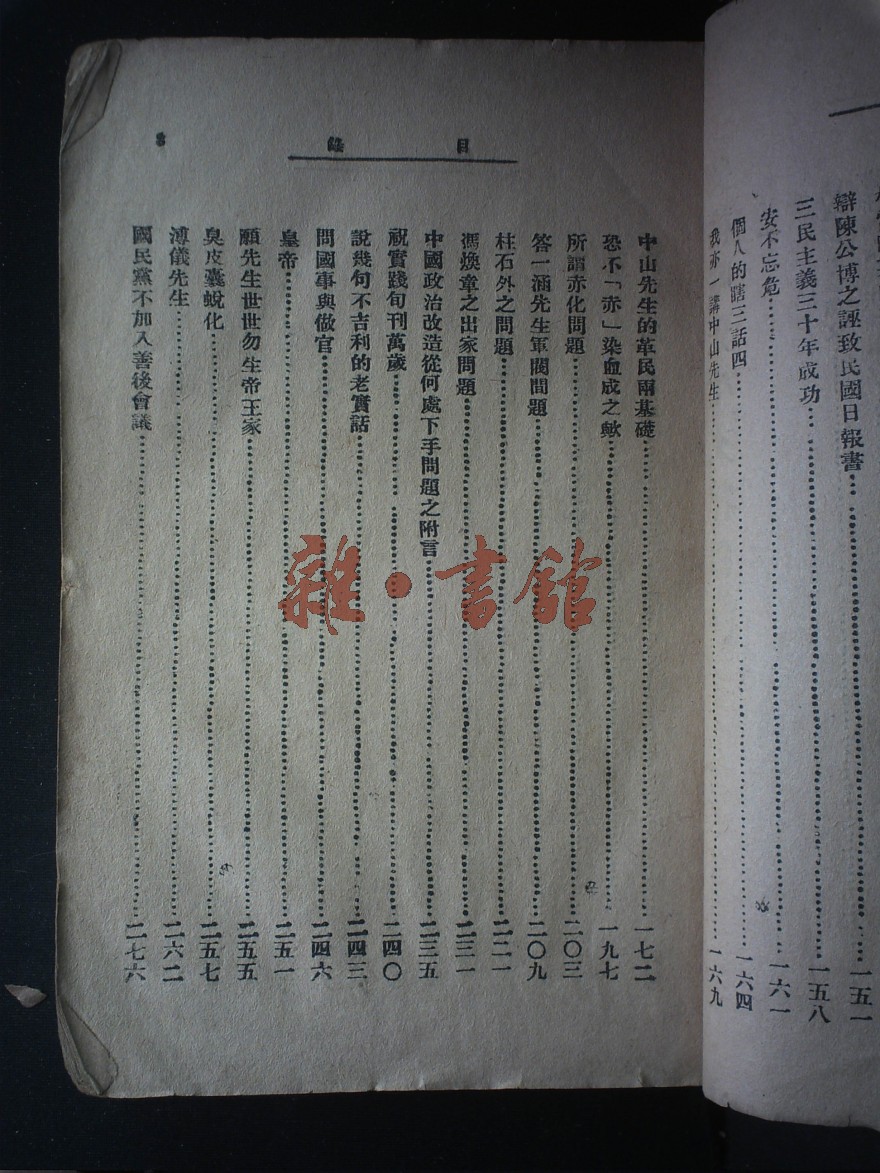 辯陳公博之誣致民國日報書……一五一
三民主義三十年成功……一五八
安不忘危……一六一
個人的瞎三話四……一六四
我亦一講中山先生……一六九
目錄 3
中山先生的革民兩基礎……一七二
恐不「赤」染血成之歟……一九七
所謂赤化問題……二〇三
答一涵先生軍閥問題……二〇九
柱石外之問題……二二一
馮煥章之出家問題……二三一
中國政治改造從何處下手問題之附言……二三五
祝實踐旬刊萬歲……二四〇
說幾句不吉利的老實話……二四三
問國事與做官……二四六
皇帝……二五一
願先生世世勿生帝王家……二五五
臭皮囊蛻化……二五七
溥儀先生……二六二
國民黨不加入善後會議……二七六
雜·書館